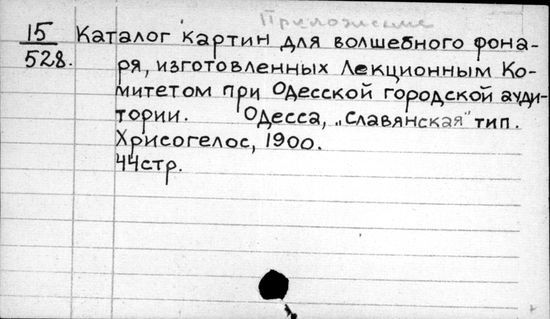 Приложение
15 Каталог картин для волшебного фона-
528. ря, изготовленных Лекционным Ко-
митетом при Одесской городской ауди-
тории. Одесса, „Славянская" тип.
Хрисогелос, 1900.
44 стр.